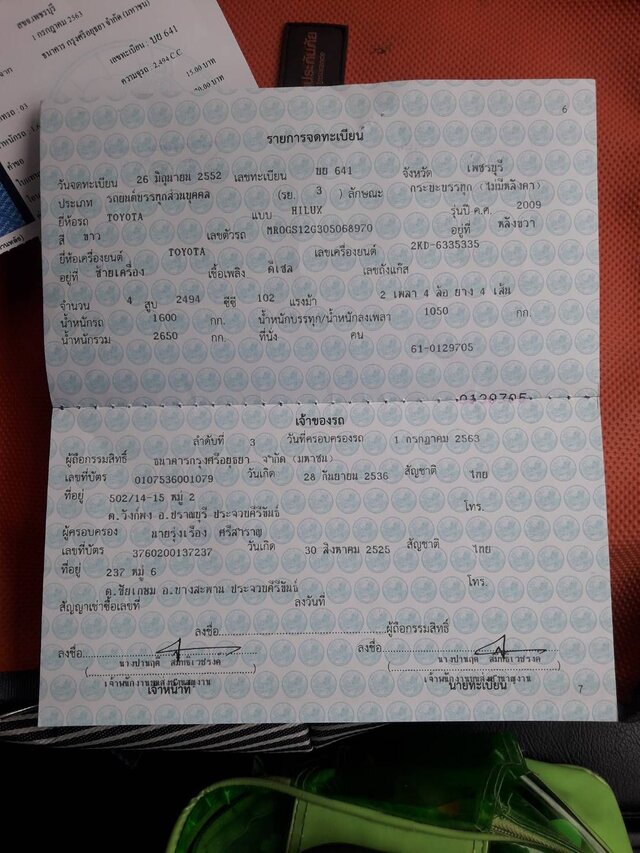 สขจ.เพชรบุรี
1 กรกฎาคม 2563
ธนาคาร กรุงศรีอยุธยา จำกัด (มหาชน)
เลขทะเบียน : บย 641
ความจุรถ : 2,494 C.C.
15.00 บาท
ประกันภัย
6
รายการจดทะเบียน
วันจดทะเบียน 26 มิถุนายน 2552 เลขทะเบียน บย 641 จังหวัด เพชรบุรี
ประเภท รถยนต์บรรทุกส่วนบุคคล (รย. 3 ) ลักษณะ กระบะบรรทุก (ไม่มีหลังคา)
ยี่ห้อรถ TOYOTA แบบ HILUX รุ่นปี ค.ศ. 2009
สี ขาว เลขตัวรถ MROGS12G305068970 อยู่ที่ หลังขวา
ยี่ห้อเครื่องยนต์ TOYOTA เลขเครื่องยนต์ 2KD-6335335
อยู่ที่ ซ้ายเครื่อง เชื้อเพลิง ดีเซล เลขถังแก๊ส
จำนวน 4 สูบ 2494 ซีซี 102 แรงม้า 2 เพลา 4 ล้อ ยาง 4 เส้น
น้ำหนักรถ 1600 กก. น้ำหนักบรรทุก/น้ำหนักลงเพลา 1050 กก.
น้ำหนักรวม 2650 กก. ที่นั่ง คน
61-0129705
0129705
เจ้าของรถ
ลำดับที่ 3 วันที่ครอบครองรถ 1 กรกฎาคม 2563
ผู้ถือกรรมสิทธิ์ ธนาคารกรุงศรีอยุธยา จำกัด (มหาชน)
เลขที่บัตร 0107536001079 วันเกิด 28 กันยายน 2536 สัญชาติ ไทย
ที่อยู่ 502/14-15 หมู่ 2 โทร.
ต.วังก์พง อ.ปราณบุรี ประจวบคีรีขันธ์
ผู้ครอบครอง นายรุ่งเรือง ศรีสำราญ
เลขที่บัตร 3760200137237 วันเกิด 30 สิงหาคม 2525 สัญชาติ ไทย
ที่อยู่ 237 หมู่ 6 โทร.
ต.ชัยเกษม อ.บางสะพาน ประจวบคีรีขันธ์
สัญญาเช่าซื้อเลขที่ ลงวันที่
ลงชื่อ ผู้ถือกรรมสิทธิ์
ลงชื่อ ลงชื่อ
เจ้าหน้าที่ นายทะเบียน
7